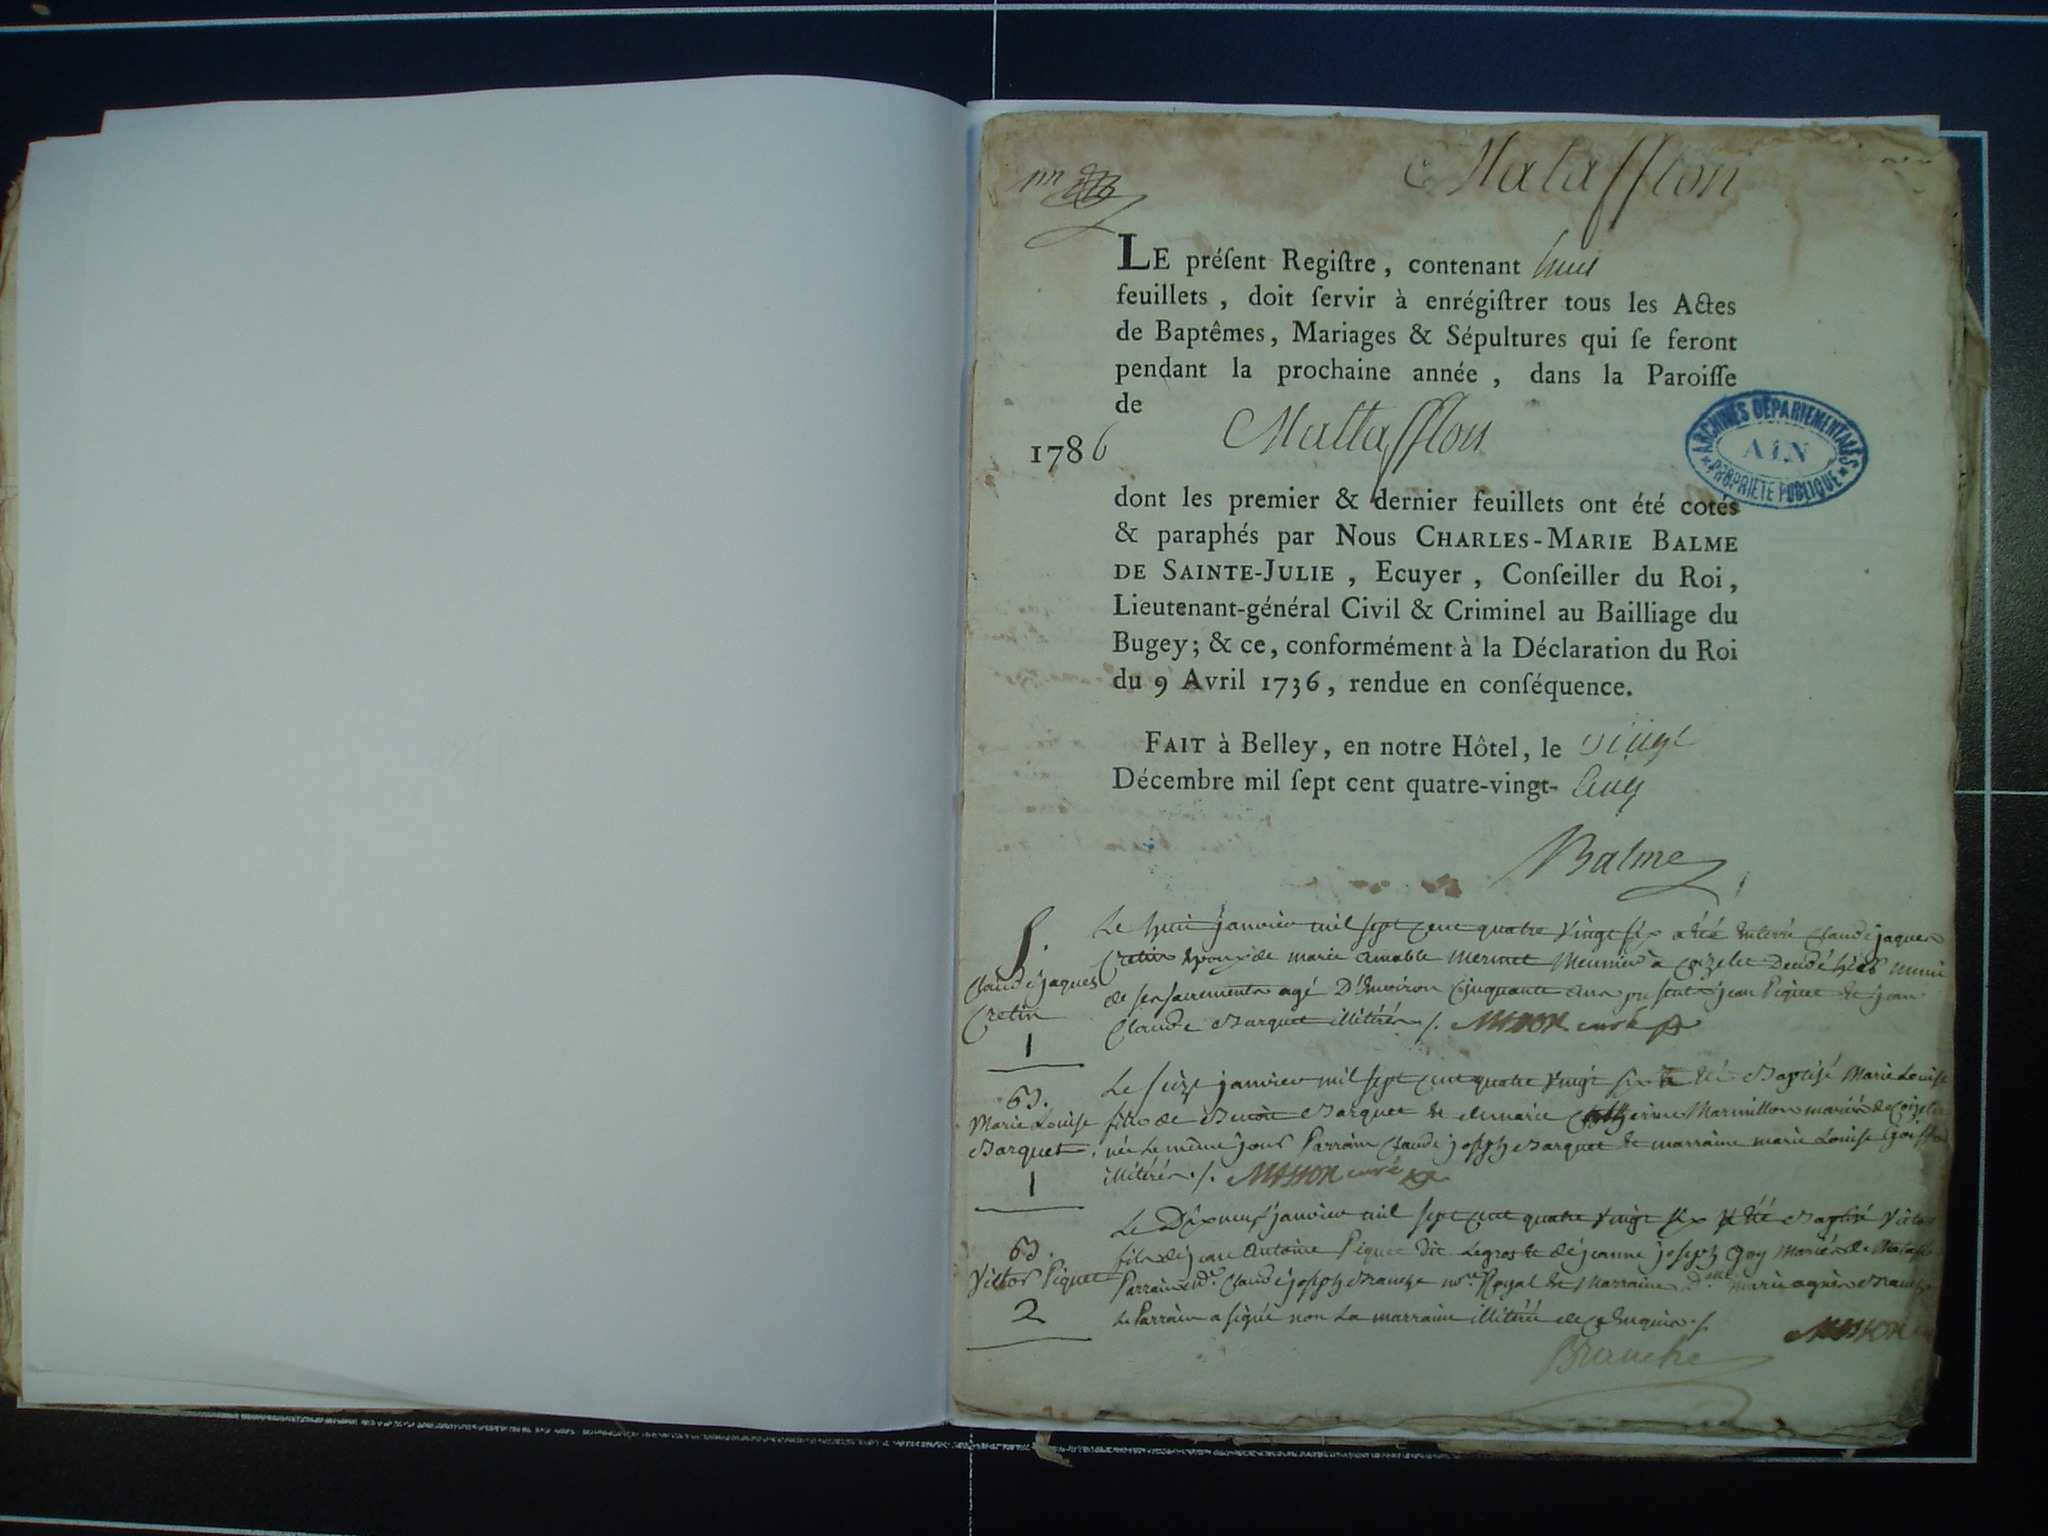 Matafflon
LE préſent Regiſtre, contenant huit
feuillets, doit ſervir à enrégiſtrer tous les Actes
de Baptêmes, Mariages & Sépultures qui ſe feront
pendant la prochaine année, dans la Paroiſſe
de
1786 Mattafflon
ARCHIVES DÉPARTEMENTALES
AIN
PROPRIÉTÉ PUBLIQUE
dont les premier & dernier feuillets ont été cotés
& paraphés par Nous CHARLES-MARIE BALME
DE SAINTE-JULIE, Ecuyer, Conſeiller du Roi,
Lieutenant-général Civil & Criminel au Bailliage du
Bugey; & ce, conformément à la Déclaration du Roi
du 9 Avril 1736, rendue en conſéquence.
FAIT à Belley, en notre Hôtel, le vingt
Décembre mil ſept cent quatre-vingt-cinq
Balme
S.
Claude jaques
Cretin
1
Le huit janvier mil sept cent quatre vingt six a été enterré Claude jaques
Cretin Epoux de marie aimable mermet Meunier à Coizelet Decedé hier muni
de ses sacrements agé D'Environ Cinquante ans presents jean Piquet et jean
Claude Barquet illitérés ./. MASSON curé
B.
Marie Louise
Barquet.
1
Le seize janvier mil sept cent quatre vingt six a été Baptisé Marie Louise
fille de Benoit Barquet et de marie Catherine Marmillon mariés de Coizelet
née le même jour Parrain Claude joseph Barquet et marraine marie Louise
illitérés ./. MASSON curé
B.
Victor Piquet
2
Le Dix neuf janvier mil sept cent quatre vingt six a été Baptisé Victor
fils de jean Antoine Piquet dit Legros et de jeanne joseph Goy Mariés de
Parrain Claude joseph Branche Royal et Marraine marie agnès
Le Parrain a signé non La marraine illitérée de Enquis ./. MASSON
Brunche